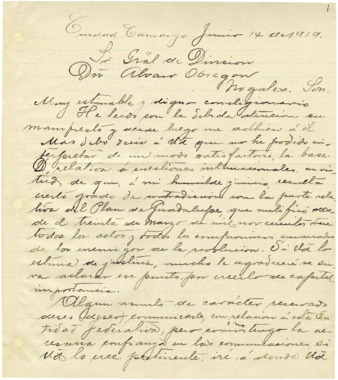 1
Ciudad Camargo Junio 14 de 1919.
Sr Gral de Division
Dn Alvaro Obregon
Nogales. Son.
Muy estimable y digno correligionario
He leido con la debida atencion su
manifiesto y desde luego me adhiero á él
Mas debo decir á Ud que no he podido in-
terpretar de un modo satisfactorio, la base
relativa a cuestiones internacionales, en vir-
tud, de que, á mi humilde juicio resulta
cierto grado de contradiccion con la parte rela
tiva del Plan de Guadalupe, que
de el treinta de Marzo de mil novecientos
todos los actos y todos los compromisos
de los enemigos de la revolucion. Si Ud lo
estima de justicia, mucho le agradeceré se sir
va aclarar ese punto por creerlo de capital
importancia.
Algun asunto de carácter reservado
deseo comunicarle con relacion á esta en
tidad federativa, pero como no tengo la ne
cesaria confianza en las comunicaciones si
Ud lo cree pertinente, iré a donde Ud